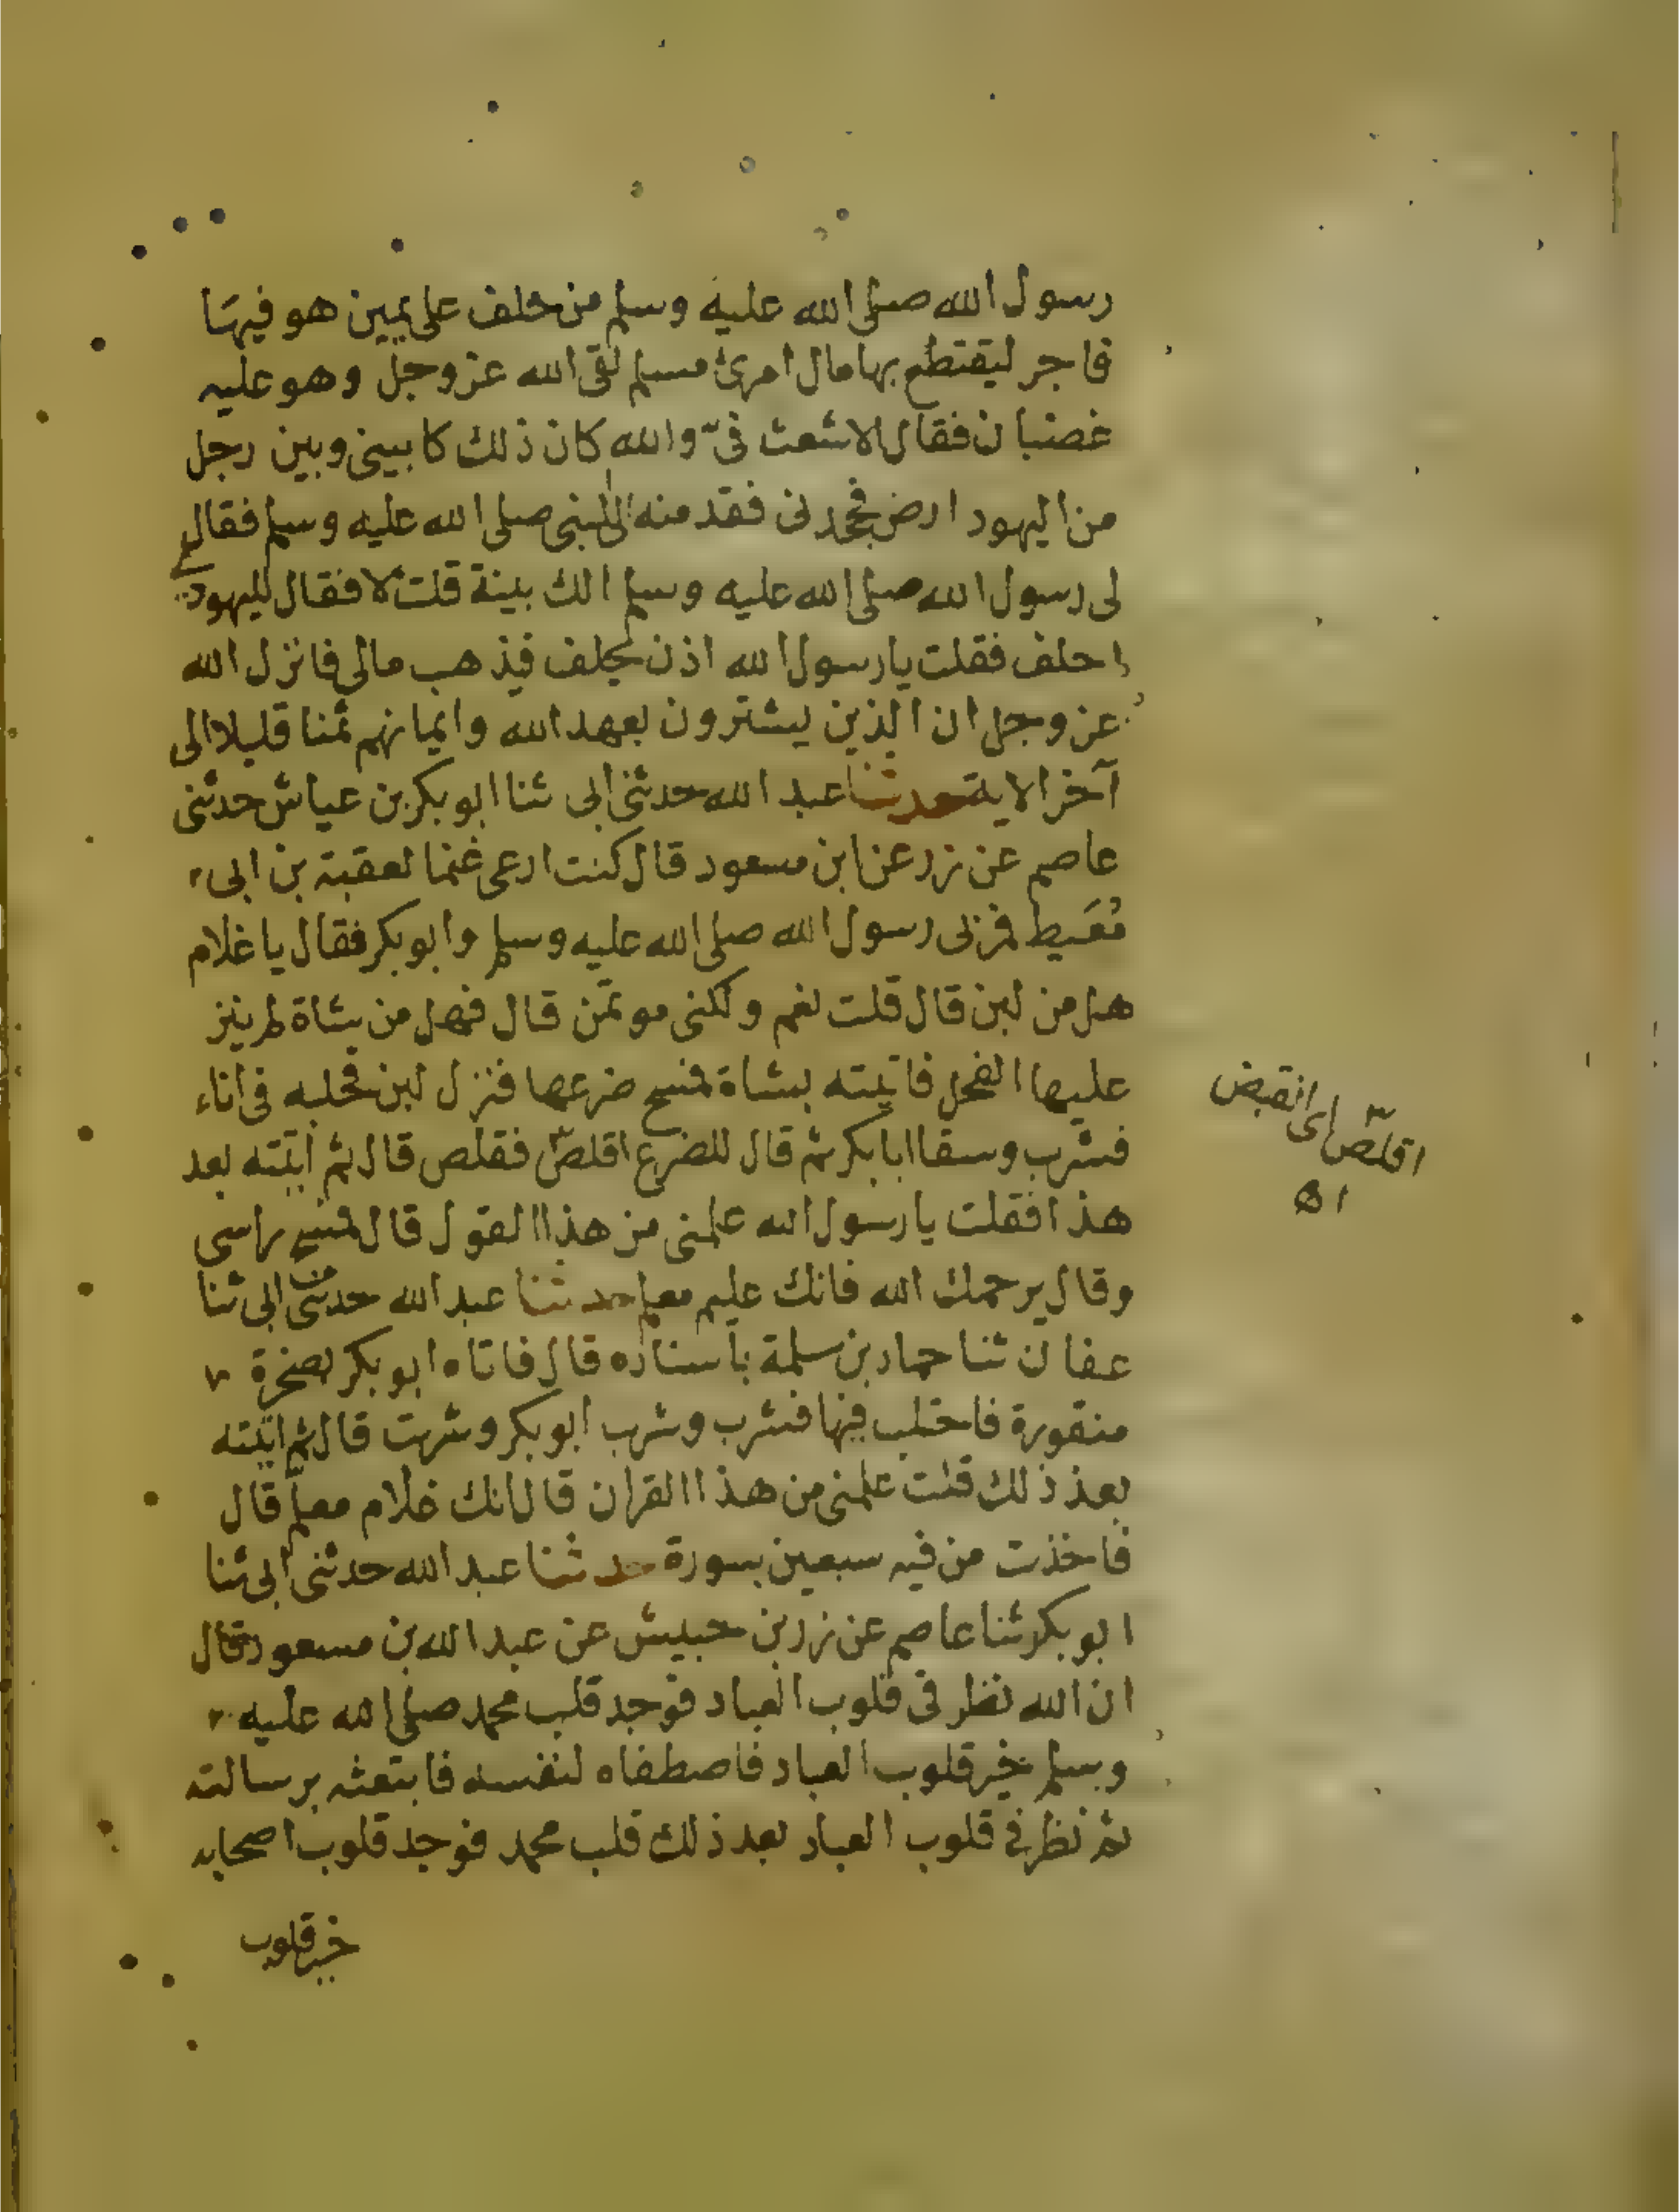 رسول الله صلى الله عليه وسلم من حلف على يمين هو فيها
فاجر ليقتطع بها مال امرئ مسلم لقى الله عز وجل وهو عليه
غضبان فقال الاشعث فىّ والله كان ذلك كا بينى وبين رجل
من اليهود ارض فجحدنى فقدمنه الى النبى صلى الله عليه وسلم فقال
لى رسول الله صلى الله عليه وسلم الك بينة قلت لا فقال لليهودى
احلف فقلت يا رسول الله اذن يحلف فيذهب مالى فانزل الله
عز وجل ان الذين يشترون بعهد الله وايمانهم ثمنا قليلا الى
آخر الاية حدثنا عبد الله حدثنى ابى ثنا ابو بكر بن عياش حدثنى
عاصم عن زر عن ابن مسعود قال كنت ارعى غنما لعقبة بن ابى
مُعَيط فمر بى رسول الله صلى الله عليه وسلم وابو بكر فقال يا غلام
هل من لبن قال قلت نعم ولكنى موتمن قال فهل من شاة لم ينز
عليها الفحل فاتيته بشاة فمسح ضرعها فنزل لبن فحلبه فى اناء
فشرب وسقا ابا بكر ثم قال للضرع اقلص فقلص قال ثم اتيته بعد
هذا فقلت يا رسول الله علمنى من هذا القول قال فمسح راسى
وقال يرحمك الله فانك عليم معلم حدثنا عبد الله حدثنى ابى ثنا
عفان ثنا حماد بن سلمة باسناده قال فاتاه ابو بكر بصخرة
منقورة فاحتلب فيها فشرب وشرب ابو بكر وشربت قال ثم اتيته
بعد ذلك قلت علمنى من هذا القران قال انك غلام معلم قال
فاخذت من فيه سبعين سورة حدثنا عبد الله حدثنى ابى ثنا
ابو بكر ثنا عاصم عن زر بن حبيش عن عبد الله بن مسعود قال
ان الله نظر فى قلوب العباد فوجد قلب محمد صلى الله عليه
وسلم خير قلوب العباد فاصطفاه لنفسه فابتعثه برسالته
ثم نظر فى قلوب العباد بعد ذلك قلب محمد فوجد قلوب اصحابه
خير قلوب
اقلص اى انقبض
اه